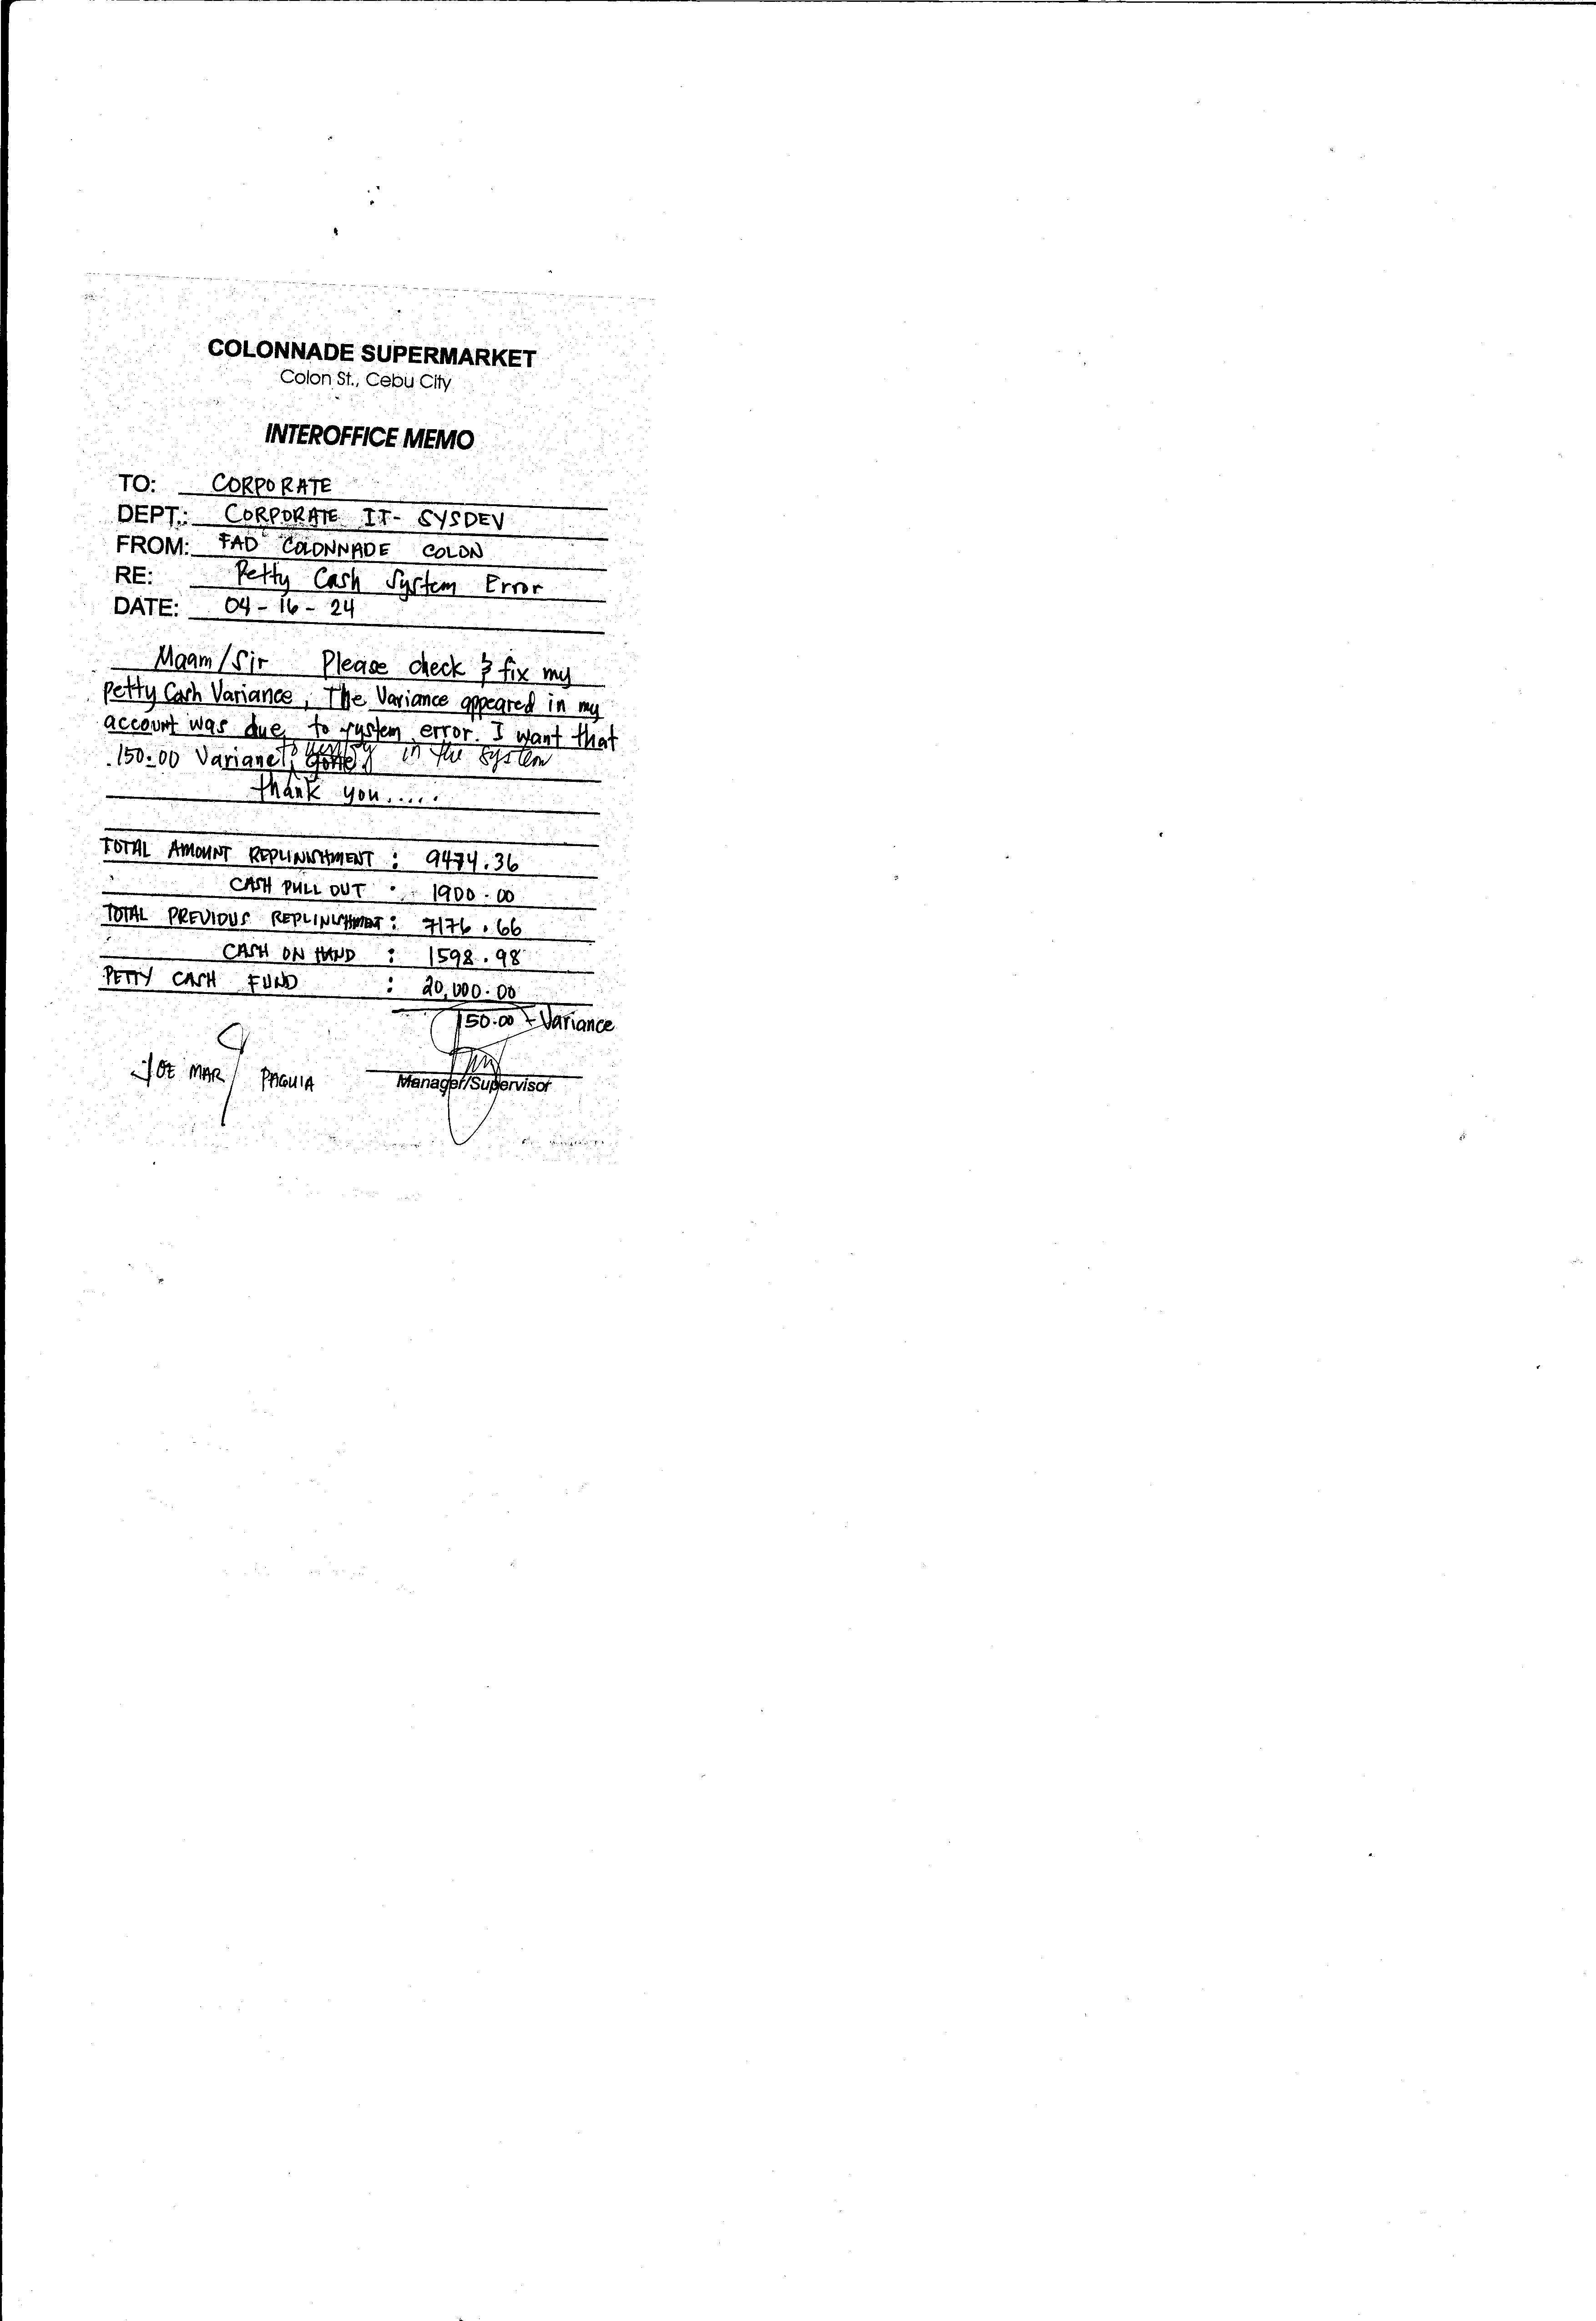 COLONNADE SUPERMARKET
Colon St., Cebu City
INTEROFFICE MEMO
TO: CORPORATE
DEPT.: CORPORATE IT- SYSDEV
FROM: FAD COLONNADE COLON
RE: Petty Cash System Error
DATE: 04-16-24
Maam/Sir Please check & fix my
petty Cash Variance, The Variance appeared in my
account was due to system error. I want that
150.00 to verify in the system
thank you.....
TOTAL AMOUNT REPLINISHMENT : 9474.36
CASH PULL OUT : 1900.00
TOTAL PREVIOUS REPLINISHMENT : 7176.66
CASH ON HAND : 1598.98
PETTY CASH FUND : 20,000.00
150.00 - Variance
JOE MAR PAGUIA
Manager/Supervisor